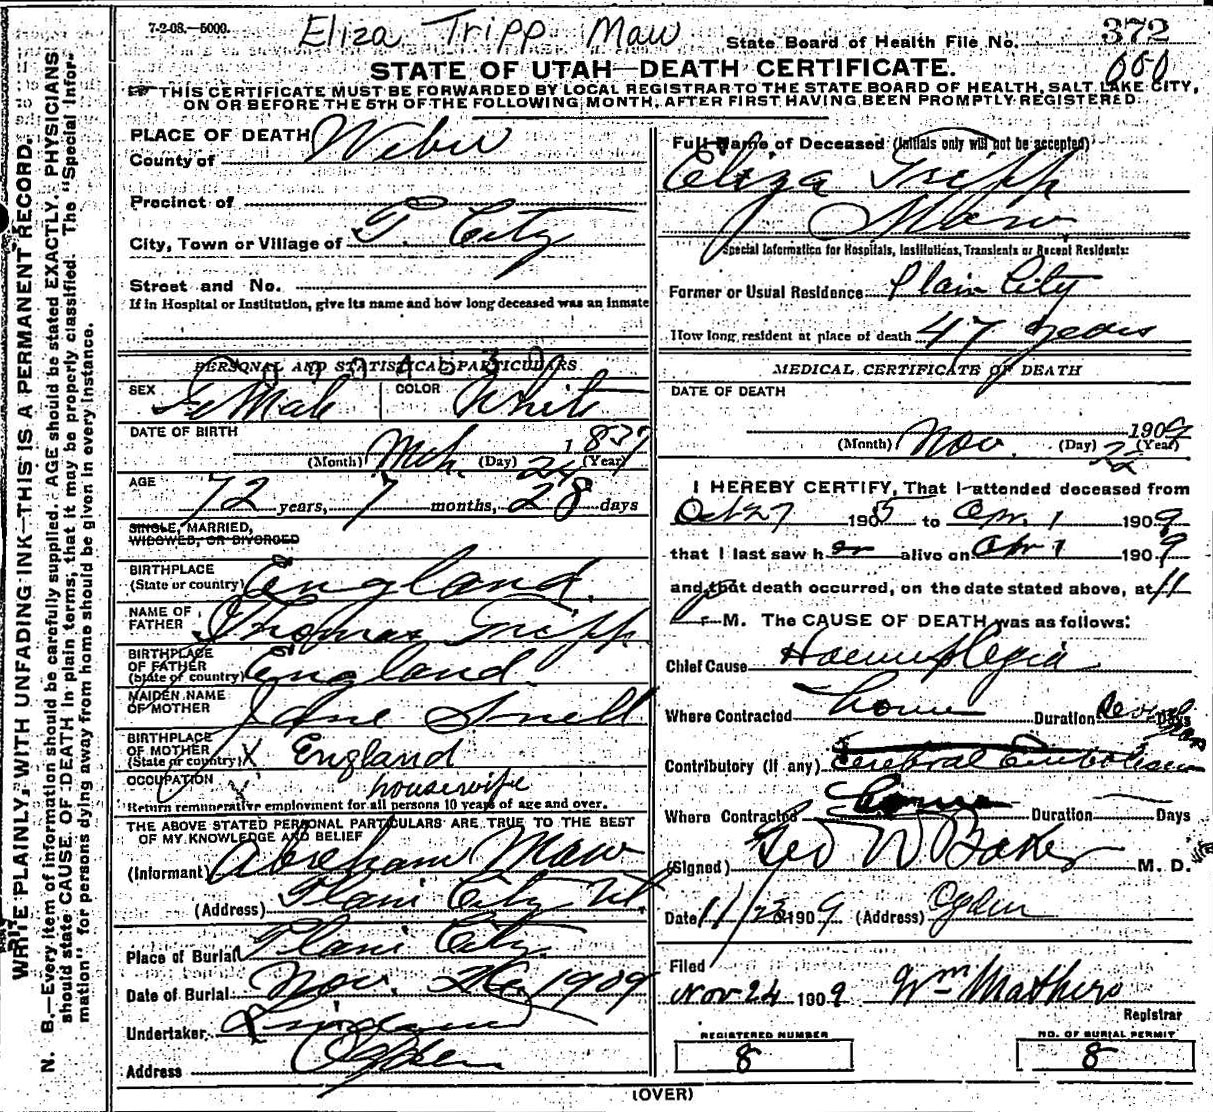 7-2-08.—5000.
Eliza Tripp Maw
State Board of Health File No. 372
STATE OF UTAH—DEATH CERTIFICATE.
THIS CERTIFICATE MUST BE FORWARDED BY LOCAL REGISTRAR TO THE STATE BOARD OF HEALTH, SALT LAKE CITY,
ON OR BEFORE THE 5TH OF THE FOLLOWING MONTH, AFTER FIRST HAVING BEEN PROMPTLY REGISTERED.
WRITE PLAINLY, WITH UNFADING INK—THIS IS A PERMANENT RECORD.
N. B.—Every item of information should be carefully supplied. AGE should be stated EXACTLY. PHYSICIANS
should state CAUSE OF DEATH in plain terms, that it may be properly classified. The "Special Infor-
mation" for persons dying away from home should be given in every instance.
PLACE OF DEATH
County of Weber
Precinct of
City, Town or Village of P. City
Street and No.
If in Hospital or Institution, give its name and how long deceased was an inmate
PERSONAL AND STATISTICAL PARTICULARS
SEX FeMale COLOR White
DATE OF BIRTH
(Month) Mch. (Day) 24 1837 (Year)
AGE
72 years, 7 months, 28 days
SINGLE, MARRIED,
WIDOWED, OR DIVORCED
BIRTHPLACE
(State or country) England
NAME OF
FATHER Thomas Tripp
BIRTHPLACE
OF FATHER
(State or country) England
MAIDEN NAME
OF MOTHER Jane Snell
BIRTHPLACE
OF MOTHER
(State or country) X England
OCCUPATION X housewife
Return remunerative employment for all persons 10 years of age and over.
THE ABOVE STATED PERSONAL PARTICULARS ARE TRUE TO THE BEST
OF MY KNOWLEDGE AND BELIEF
(Informant) Abraham Maw
(Address) Plain City Ut.
Place of Burial Plain City
Date of Burial Nov. 1909
Undertaker
Address Ogden
Full Name of Deceased (Initials only will not be accepted)
Eliza Tripp
Maw
Special Information for Hospitals, Institutions, Transients or Recent Residents:
Former or Usual Residence Plain City
How long resident at place of death 47 years
MEDICAL CERTIFICATE OF DEATH
DATE OF DEATH
(Month) Nov. (Day) 22 1909 (Year)
I HEREBY CERTIFY, That I attended deceased from
Oct 27 1905 to Apr. 1 1909
that I last saw her alive on Apr 1 1909
and that death occurred, on the date stated above, at 11
M. The CAUSE OF DEATH was as follows:
Chief Cause Haemiplegia
Where Contracted home Duration Several Days
Contributory (if any) Cerebral Embolism
Where Contracted home Duration Days
(Signed) Geo W Baker M. D.
Date 11/23 1909 (Address) Ogden
Filed
Nov 24 1909 Wm Mathers
Registrar
REGISTERED NUMBER
8
NO. OF BURIAL PERMIT
8
(OVER)